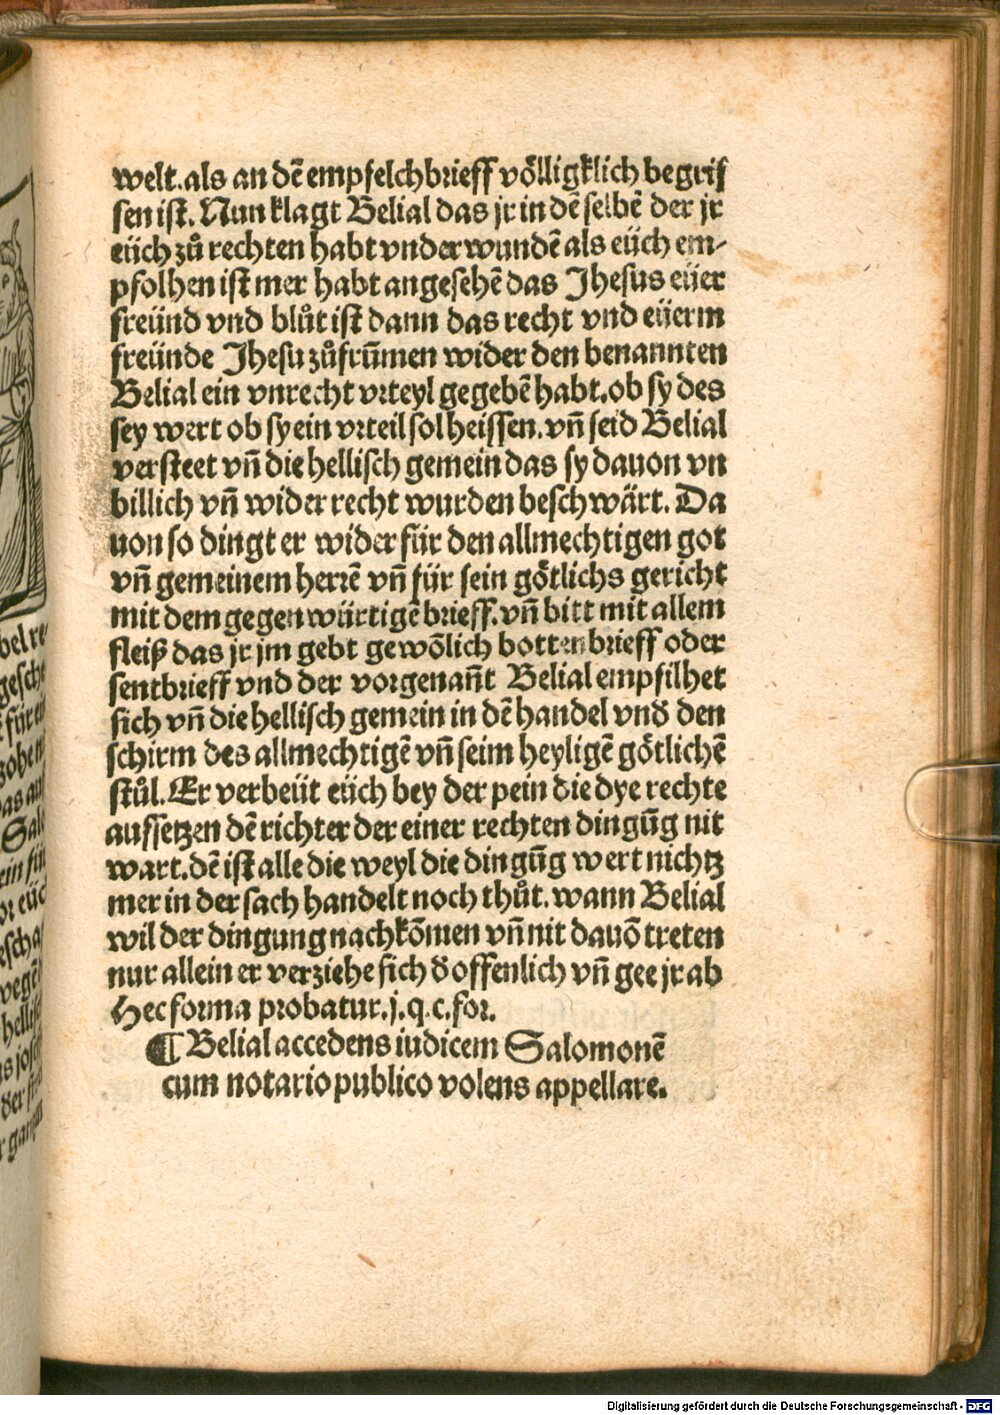 welt. als an dē empfelchbrieff võlligklich begrif
fen ist. Nun klagt Belial das jr in dē selbē der jr
eüch zů rechten habt vnderwundē als eüch em-
pfolhen ist mer habt angesehē das Jhesus eüer
freünd vnd blůt ist dann das recht vnd eüerm
freünde Jhesu zůfrūmen wider den benannten
Belial ein vnrecht vrteyl gegebē habt. ob sy des
sey wert ob sy ein vrteil sol heissen. vñ seid Belial
versteet vñ die hellisch gemein das sy dauon vn
billich vñ wider recht wurden beschwärt. Da
uon so dingt er wider für den allmechtigen got
vñ gemeinem herrē vñ für sein götlichs gericht
mit dem gegenwürtigē brieff. vñ bitt mit allem
fleiß das jr jm gebt gewõlich botten brieff oder
sentbrieff vnd der vorgenañt Belial empfilhet
sich vñ die hellisch gemein in dē handel vnd den
schirm des allmechtigē vñ seim heyligē götlichē
stůl. Er verbeüt eüch bey der pein die dye rechte
auffsetzen dē richter der einer rechten dingūg nit
wart. dē ist alle die weyl die dingūg wert nichtz
mer in der sach handelt noch thůt. wann Belial
wil der dingung nachkõmen vñ nit dauõ treten
nur allein er verziehe sich d offenlich vñ gee jr ab
Hec forma probatur. j. q. c. for.
¶ Belial accedens iudicem Salomonē
cum notario publico volens appellare.
bel re-
gesche
für eü
zohen
as auf
Sal
ein für
or eüc
gescha
wegē
helli
Digitalisierung gefördert durch die Deutsche Forschungsgemeinschaft - DFG